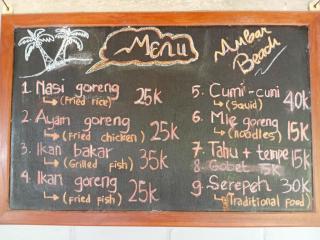 Menu
Mubar Beach
1. Nasi goreng 25k
(Fried rice)
2. Ayam goreng 25k
(Fried chicken)
3. Ikan bakar 35k
(Grilled fish)
4. Ikan goreng 25k
(Fried fish)
5. Cumi-cuni 40k
(Squid)
6. Mie goreng 15k
(Noodles)
7. Tahu + tempe 15k
8. Gobet 5k
9. Serepeh 30k
(Traditional food)